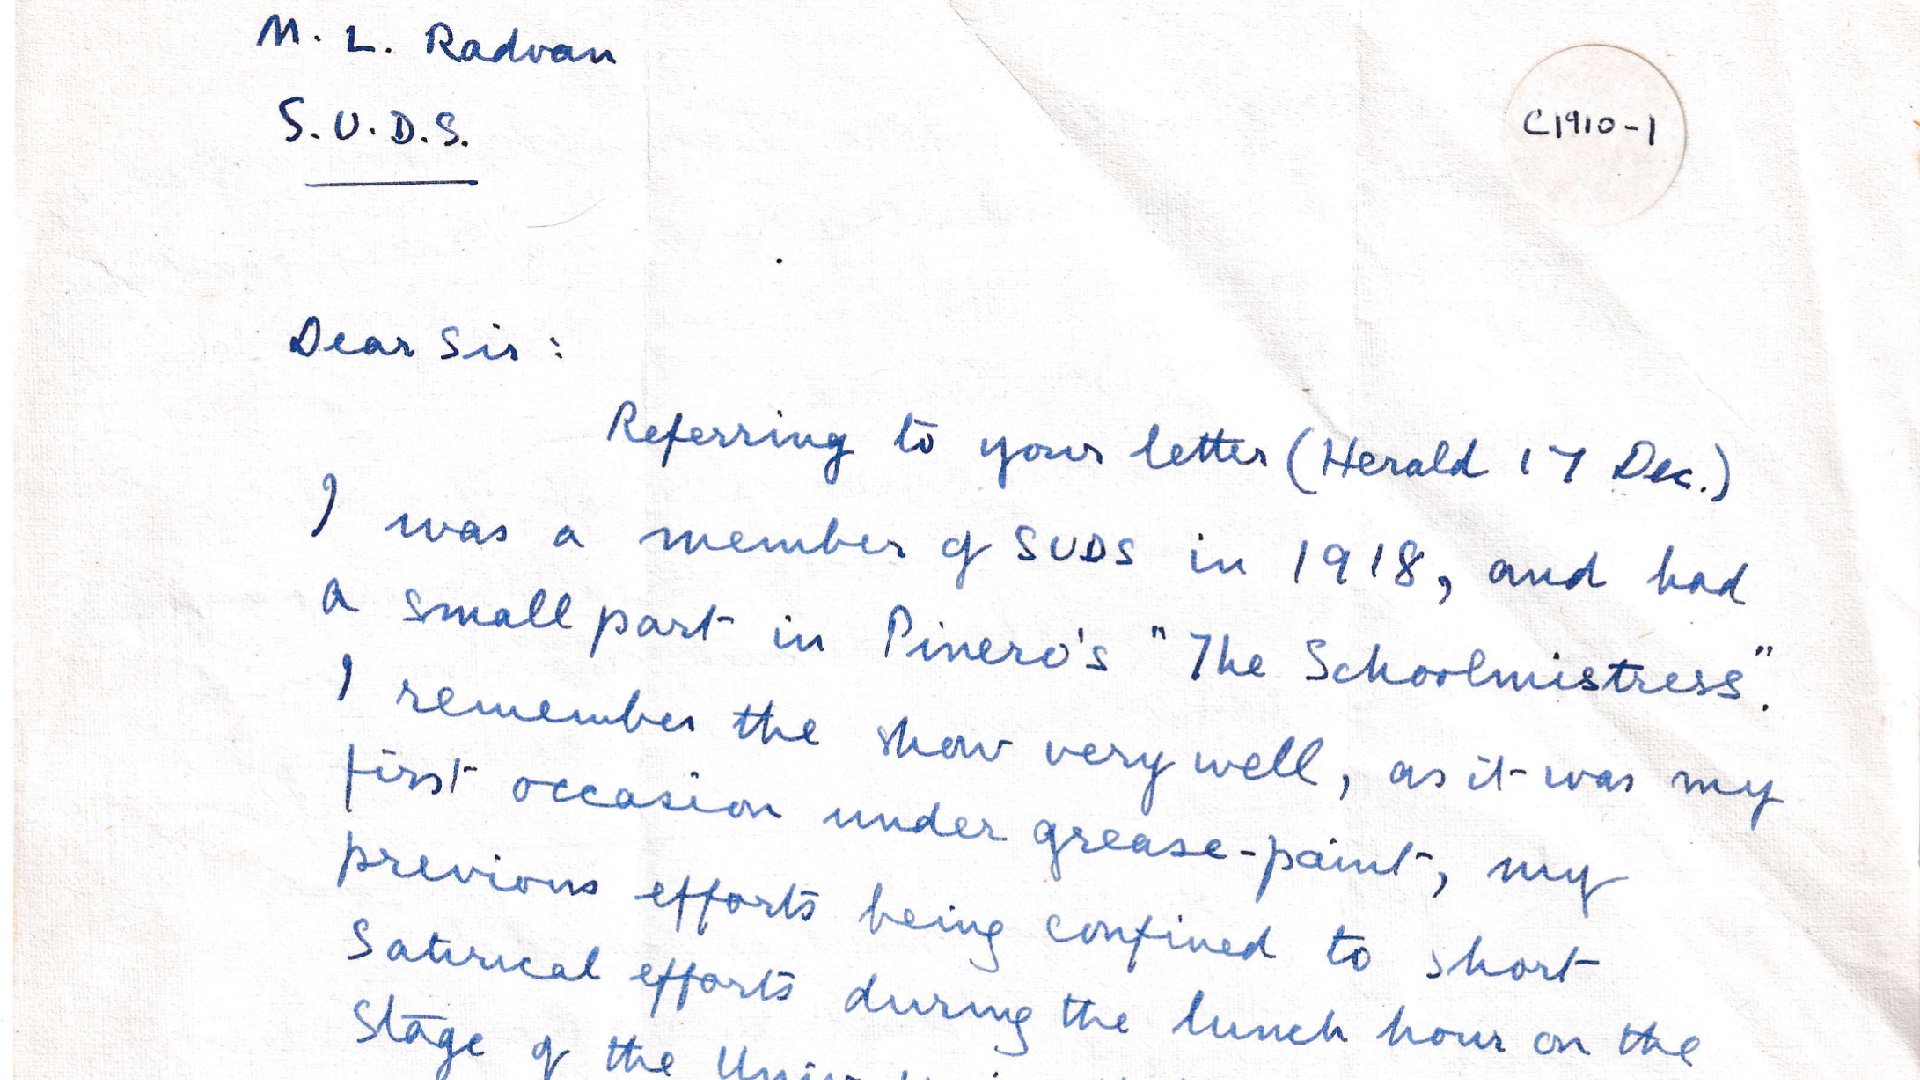 M. L. Radvan
S.U.D.S.
C1910-1
Dear Sir:
Referring to your letter (Herald 17 Dec.)
I was a member of SUDS in 1918, and had
a small part in Pinero's "The Schoolmistress".
I remember the show very well, as it was my
first occasion under grease-paint, my
previous efforts being confined to short
satirical efforts during the lunch hour on the
stage of the